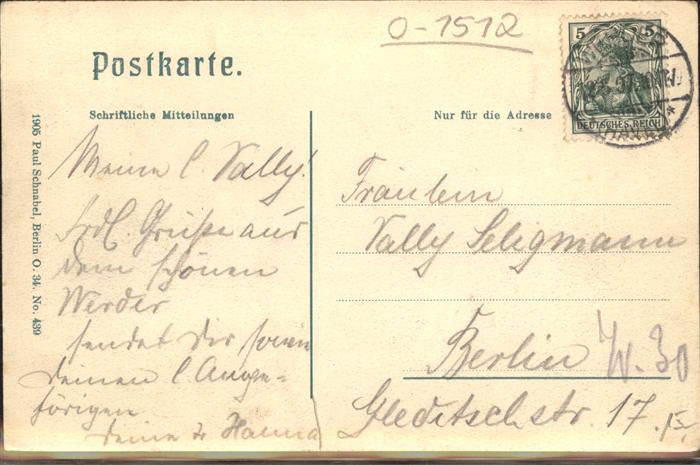 O-1512
Postkarte.
5 5
DEUTSCHES REICH
Schriftliche Mitteilungen
Nur für die Adresse
1905 Paul Schnabel, Berlin O. 34. No. 439
Meine l. Vally!
Frdl. Grüße aus
dem schönen
Werder
sendet dir sowie
deinen l. Ange-
hörigen
Deine Hanna
Fräulein
Vally Seligmann
Berlin W. 30
Gleditschstr. 17.